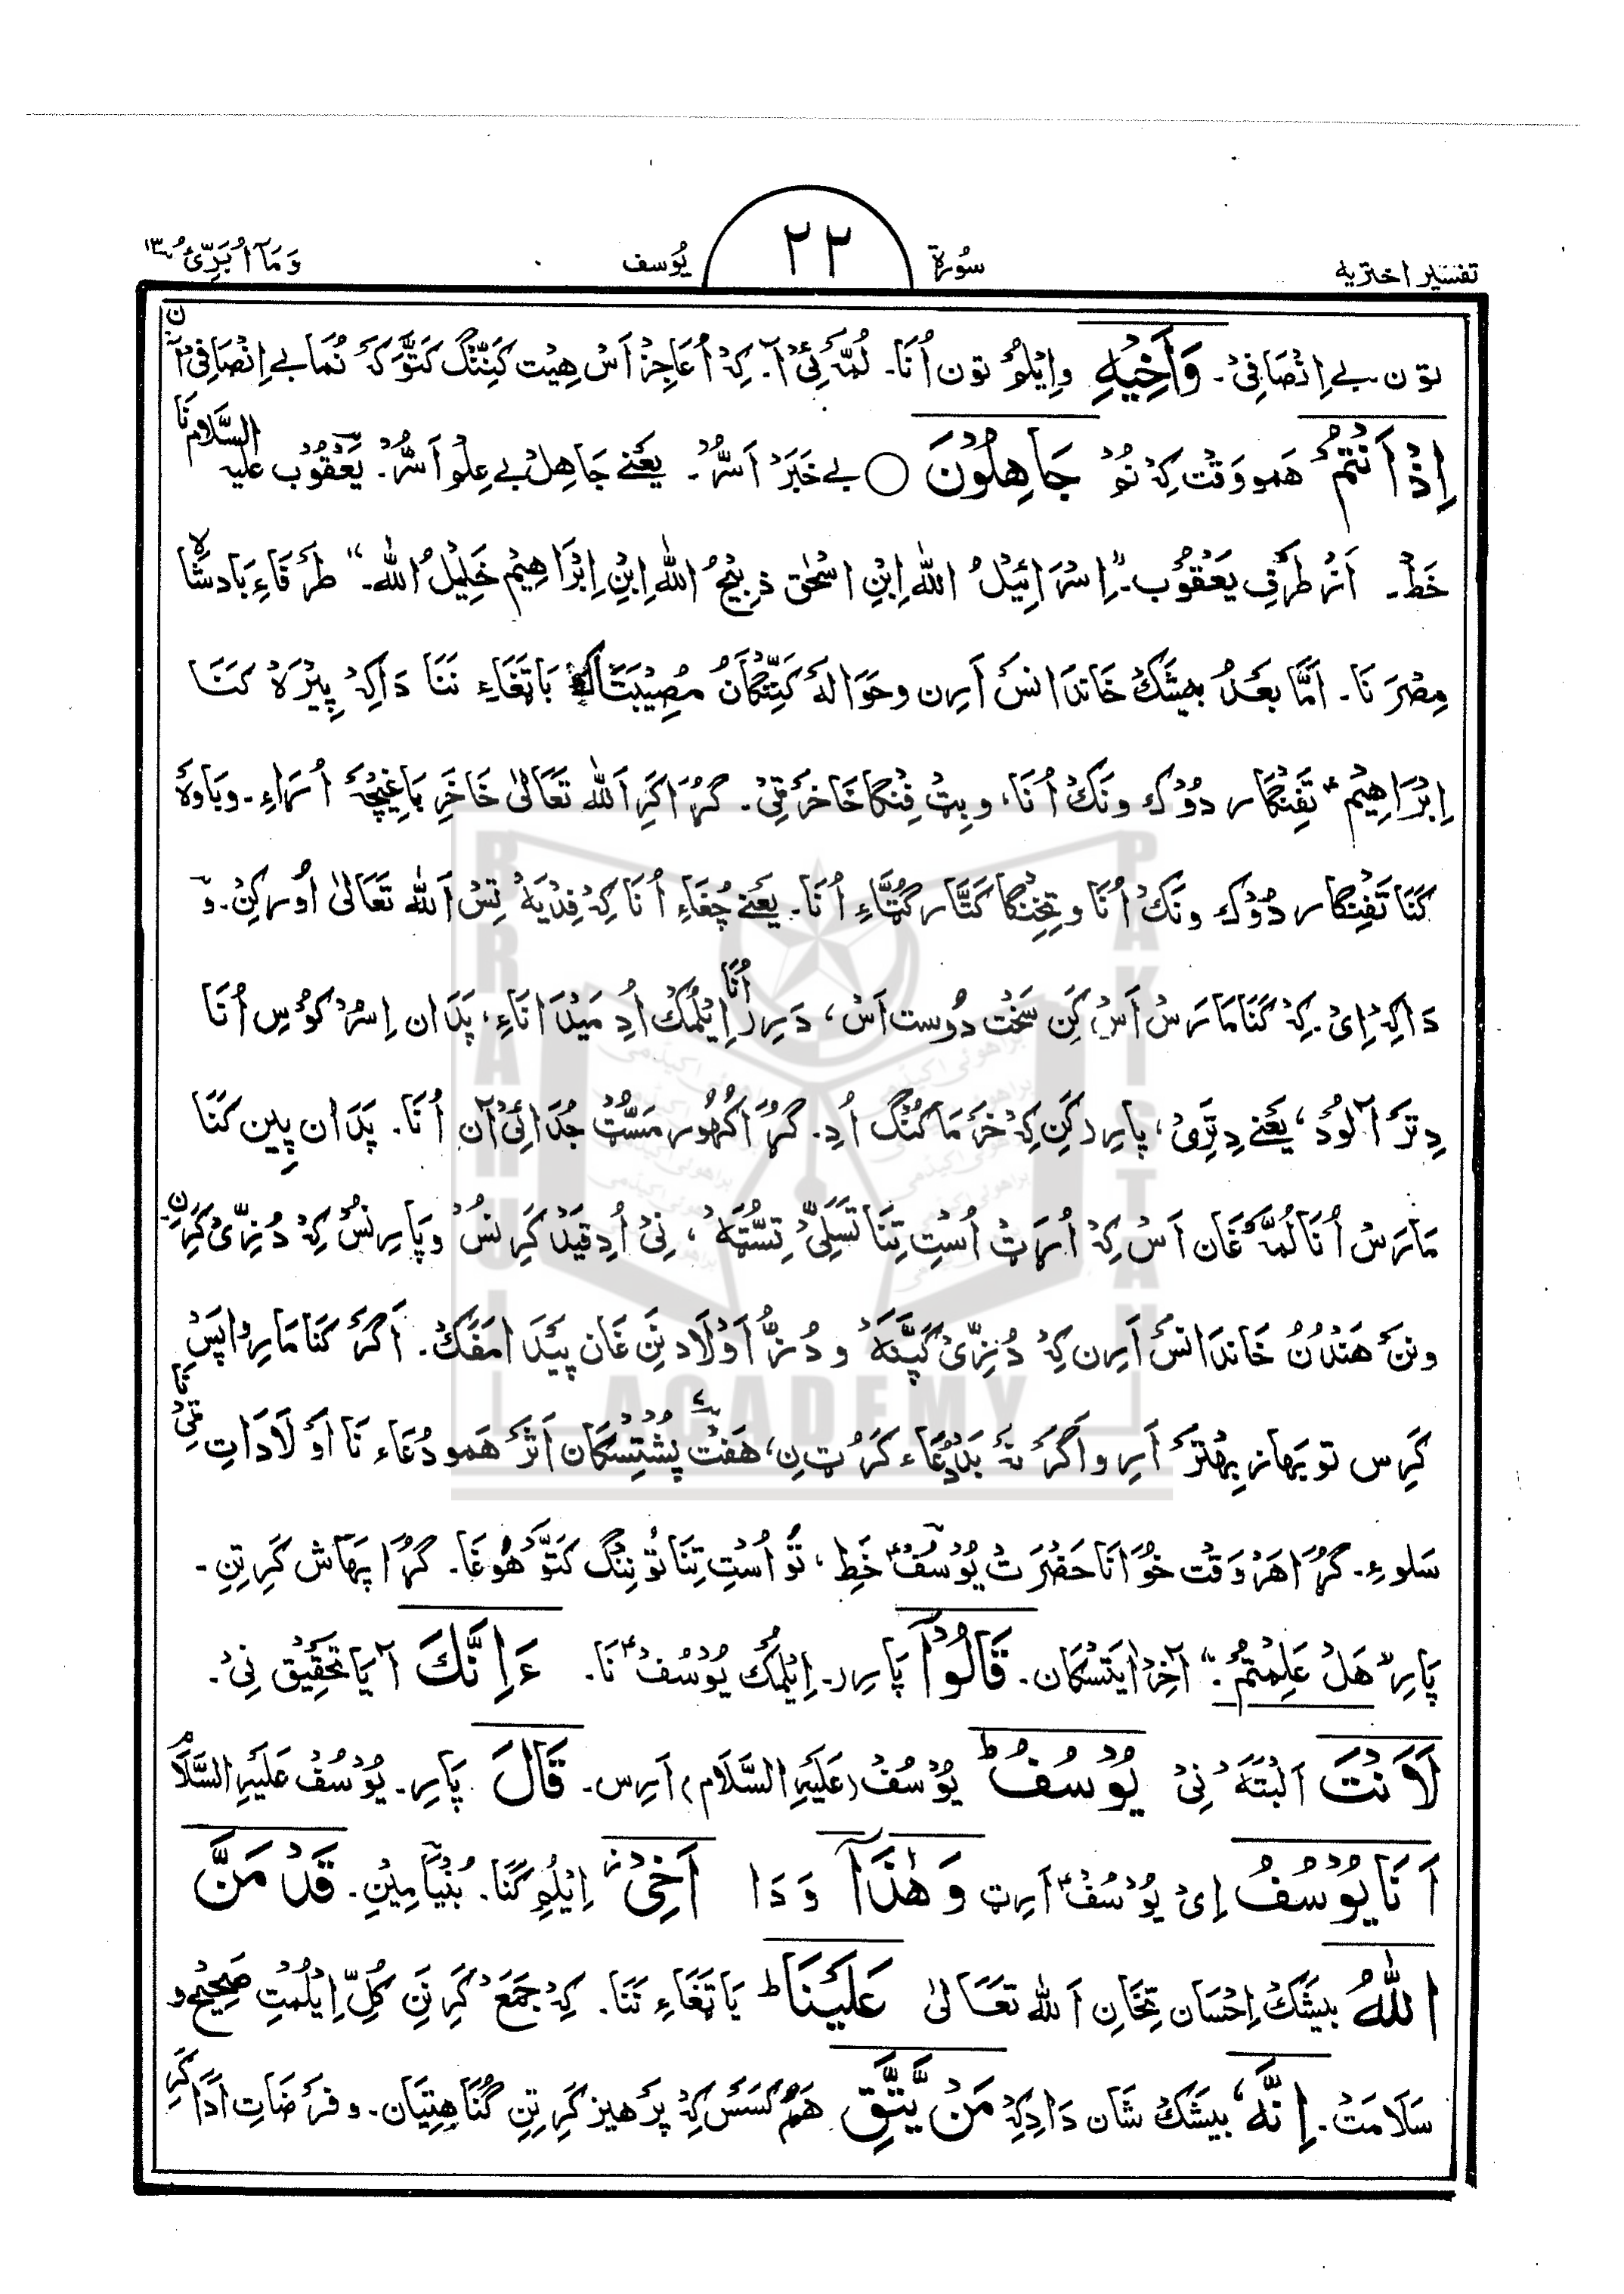 تفسیر اختریه
سُورة
۲۲
یُوسف
وَمَآ اُبَرِّئُ ۱۳
تون بے اِنْصَافِیْ۔ وَاَخِیْهِ واِیْلُم تون اُنَا۔ لُمَّہ ئِیْ آ۔ کِہْ اُ عَاجِزْ اَسْ هِیْت کَنِنْگ کَتَّوَکَہ نُمَا بے اِنْصَافِیْ آن
اِذْ اَنْتُمْ هَمو وَقْت کِہْ نُمْ جَاهِلُوْنَ ○ بے خَبَرْ اَسُّرْ۔ یَعْنے جَاهِلْ بے عِلْم اَسُّرْ۔ یَعْقُوْب علیہ السَّلَام نَا
خَطْ۔ اَنْ طَرَفِ یَعْقُوْب۔ "اِسْرَائِیْلُ اللّٰہ اِبْنِ اِسْحٰق ذَبِیْحُ اللّٰہ اِبْنِ اِبْرَاهِیْم خَلِیْلُ اللّٰہ۔" طَرَفَاءِ بَادشَاہ
مِصْرَ نَا۔ اَمَّا بَعْدُ بیشَکْ خَاندَانَسْ اَرِن وحَوَالَہ کَنِنْگَانُ مُصِیْبَتَاکْ بَاتَغَاءِ نَنَا دَاکِہْ پِیْرَہْ کَنَا
اِبْرَاهِیْم تَفِنْگَار دُوْک ونَکْ اُنَا، وبِٹ فِنْگَا خَاخَرْ ٹِیْ۔ گُڑَا کَرِ اَللّٰہ تَعَالٰی خَاخَرِ بَاغِیْچَہْ اُڑَاءِ۔ وبَاوَہْ
کَنَا تَفِنْگَار دُوْک ونَکْ اُنَا وتِخِنْگَا کَتَّار گُٹَّاءِ اُنَا۔ یَعْنے چُغَاءِ اُنَا کِہْ فِدْیَہْ تِسْ اَللّٰہ تَعَالٰی اُوْرکِنْ۔ وَ
دَاکِہْ اِیْ۔ کِہْ کَنَا مَارَسْ اَسْ کَنِ سَخْت دُوست اَسْ، دَرِر اُنَا اِیْلُمْکْ اُدِ مَیْدَانَاءِ، پَدَان اِسْرُ کُوْسِ اُنَا
دِتَرْ آلُودْ، یَعْنے دِتَّرِیْ، پارِر کَنِ کِہْ خَرْمَا کُنْگ اُدِ۔ گُڑَا کُهُوْر مَسُّٹ جُدَائِیْ آن اُنَا۔ پَدَان پِیْن کَنَا
مَارَسْ اُنَا لُمَّہ غَان اَسْ کِہْ اُرَٹ اُسْتِ تِنَا تَسَلِّیْ تِسُّٹَہْ، نِیْ اُدِ قَیْدْ کَرِنُسْ وپَارِنُسْ کِہْ دُزِّیْ کَرِنْ
ونَنْ هَنْدُنُ خَاندَانَسْ اَرِن کِہْ دُزِّیْ کَپَّنَہْ و دُزُّ اَوْلَاد نَنِ غَان پَیْدَا مَفَکْ۔ اَگَرْ کَنَا مَارِ وَاپَسْ
کَرِس تو بَهَاز بِهْتَرْ اَرِ و اَگَرْ نَہْ بَدْدُعَاء کَرُٹ نِ، هَفْت پُشْتِسْکَان اَثَرْ هَمو دُعَاء نَا اَوْلَادَاتِ نَا ٹِیْ
سَلوءِ۔ گُڑَا هَرْوَقْت خُوَانَا حَضْرَت یُوْسُفْ خَطِ، تَو اُسْتِ تِنَا تُوْنِنْگ کَتَّو هُوْغَا۔ گُڑَا پهَاش کَرِ تِنِ۔
پَارِ "هَلْ عَلِمْتُمْ۔" آخِرْ اِیتِسْکَان۔ قَالُوْٓا پَارِر۔ اِیْلُمْک یُوْسُفْ نَا۔ ءَاِنَّكَ آیَا تَحْقِیْق نِیْ۔
لَاَنْتَ اَلْبَتَّہْ نِیْ یُوْسُفُ ط یُوْسُفْ (عَلَیْہِ السَّلَام) اَرِس۔ قَالَ پَارِ۔ یُوْسُفْ عَلَیْہِ السَّلَام
اَنَا یُوْسُفُ اِیْ یُوْسُفْ اَرِٹ وَهٰذَآ وَ دَا اَخِیْ اِیْلُمِ کَنَا۔ بُنْیَامِیْنِ۔ قَدْ مَنَّ
اللّٰہُ بیشَکْ اِحْسَان تِخَانِ اَللّٰہ تَعَالٰی عَلَیْنَا ط بَاتَغَاءِ نَنَا۔ کِہْ جَمَعْ کَرِ نَنِ کُلِّ اِیْلُمْتِ صَحِیْح و
سَلَامَتْ۔ اِنَّہٗ بیشَکْ شَان دَادِکِہْ مَنْ یَّتَّقِ هَمْ کَسَسْ کِہْ پَرْهیز کَرِ تِنِ گُنَاهِتِیَان۔ و فَرْضَاتِ اَدَا کَرِ